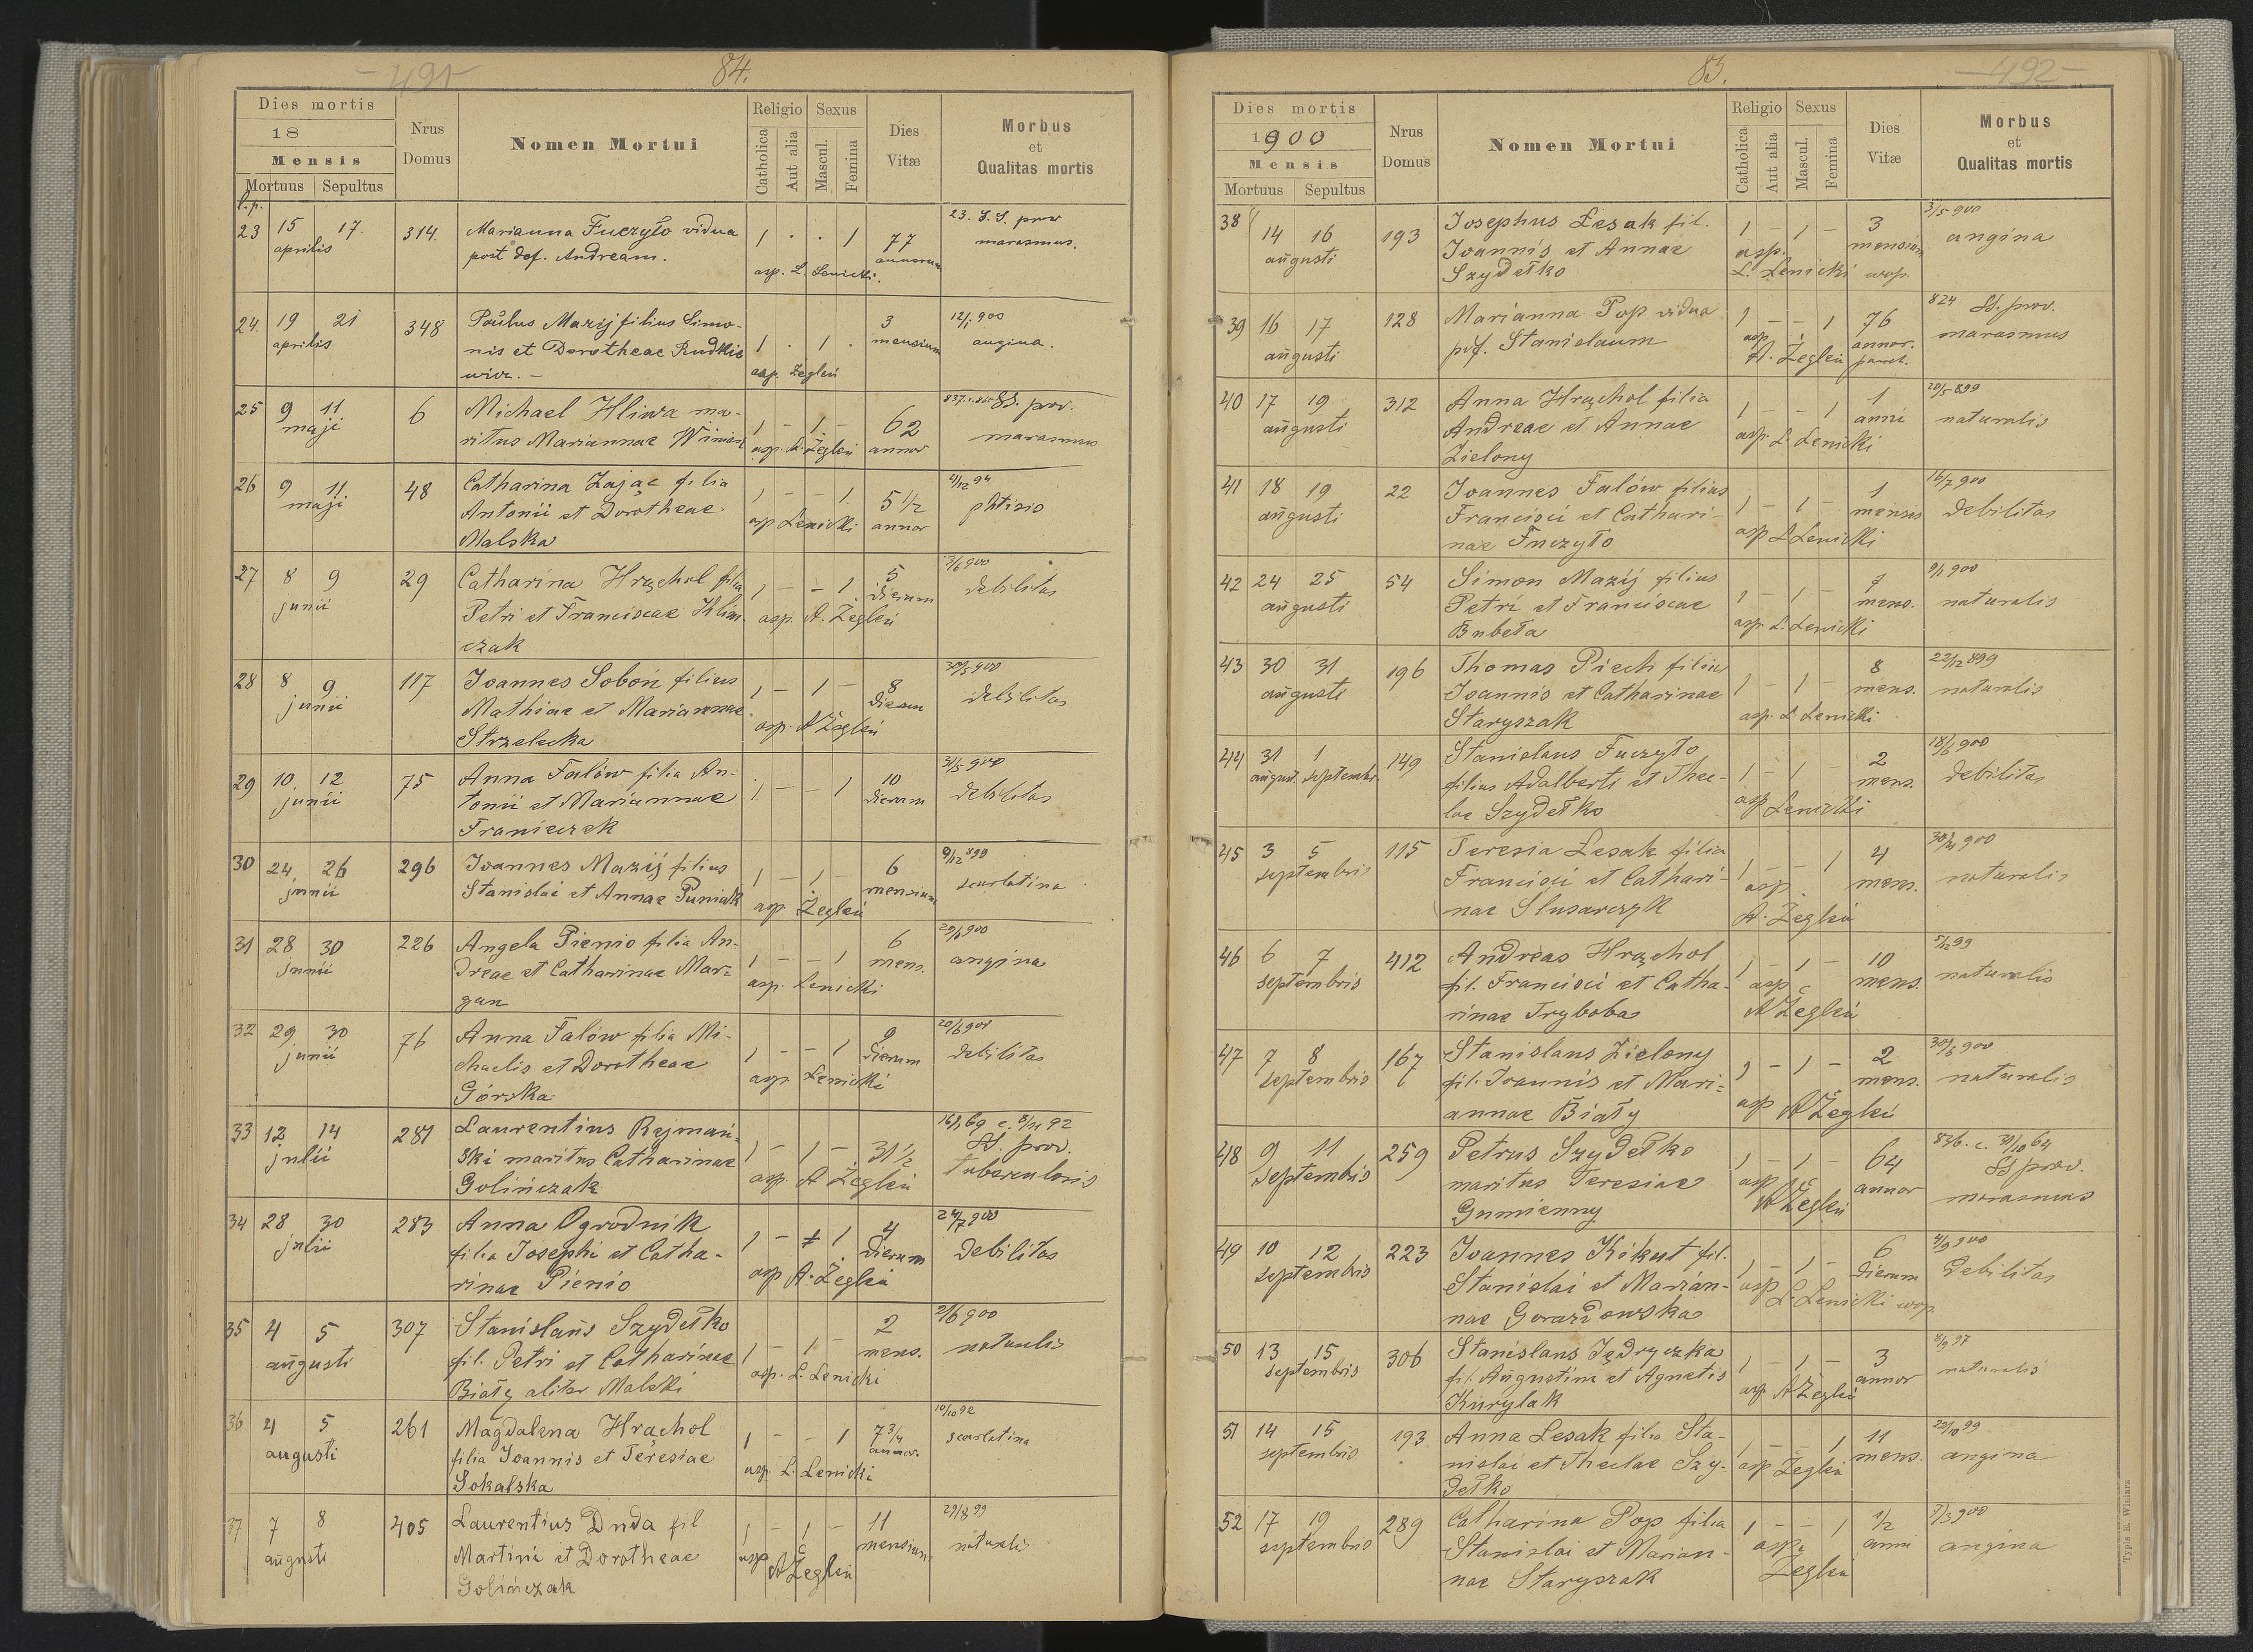 - 491 -
84.
Dies mortis
18
Mensis
Mortuus Sepultus
Nrus Domus
Nomen Mortui
Religio
Catholica
Aut alia
Sexus
Mascul.
Femina
Dies Vitæ
Morbus
et
Qualitas mortis
l.p.
23 15 17. 314. Marianna Fuczyło vidua 1 . . 1 77 23. S.S. prov
aprilis post def. Andream. asp. L. Lenicki. annorum marasmus.
24. 19 21 348 Paulus Mazij filius Simo- 1 . 1 . 3 12/1 900
aprilis nis et Dorotheae Rudkie mensium angina.
wicz. - asp. Żegleń
25 9 11 6 Michael Hliwa ma- 1 - 1 - 62 SS. prov.
maji ritus Mariannae Winiar asp. A. Żegleń annor marasmus
26 9 11 48 Catharina Zając filia 1 - - 1 5 1/2 4/12 94
maji Antonii et Dorotheae asp Lenicki annor phtisis
Malska
27 8 9 29 Catharina Hrąchol filia 1 - - 1 5 3/6 900
junii Petri et Franciscae Klim- asp. A. Żegleń dierum debilitas
czak
28 8 9 117 Joannes Soboń filius 1 - 1 - 8 30/5 900
junii Mathiae et Mariannae asp. A Żegleń dierum debilitas
Strzelecka
29 10 12 75 Anna Falów filia An- 1 - - 1 10 31/5 900
junii tonii et Mariannae dierum debilitas
Franiczek
30 24 26 296 Joannes Mazij filius 1 - 1 - 6 9/12 899
junii Stanislai et Annae Puniak asp Żegleń mensium scarlatina
31 28 30 226 Angela Pienio filia An- 1 - - 1 6 29/1 900
junii dreae et Catharinae Mar- asp. Lenicki mens. angina
gan
32 29 30 76 Anna Falów filia Mi- 1 - - 1 9 20/6 900
junii chaelis et Dorotheae asp Lenicki dierum debilitas
Górska
33 12 14 281 Laurentius Rejmań- 1 - 1 - 31 1/2 16/1 69 c. 8/11 92
julii ski maritus Catharinae asp. A Żegleń SS. prov.
Golińczak tuberculosis
34 28 30 283 Anna Ogrodnik 1 - 1 4 24/7 900
julii filia Josephi et Catha- asp A. Żegleń dierum debilitas
rinae Pienio
35 4 5 307 Stanislaus Szydełko 1 - 1 - 2 2/6 900
augusti fil. Petri et Catharinae asp. L. Lenicki mens. naturalis
Biały aliter Malski
36 4 5 261 Magdalena Hrąchol 1 - - 1 7 3/4 10/10 92
augusti filia Joannis et Teresiae asp. L. Lenicki annor. scarlatina
Sokalska
37 7 8 405 Laurentius Duda fil 1 - 1 - 11 29/8 99
augusti Martini et Dorotheae asp A Żegleń mensium naturalis
Golińczak
- 492 -
85.
Dies mortis
1900
Mensis
Mortuus Sepultus
Nrus Domus
Nomen Mortui
Religio
Catholica
Aut alia
Sexus
Mascul.
Femina
Dies Vitæ
Morbus
et
Qualitas mortis
38 14 16 193 Josephus Lesak fil. 1 - 1 - 3 3/5 900
augusti Joannis et Annae asp. mensium angina
Szydełko L. Lenicki wop.
39 16 17 128 Marianna Pop vidua 1 - - 1 76 824 SS. prov.
augusti p. df. Stanislaum asp A. Żegleń annor. paroch. marasmus
40 17 19 312 Anna Hrąchol filia 1 - - 1 1 20/5 899
augusti Andreae et Annae asp. L. Lenicki anni naturalis
Zielony
41 18 19 22 Joannes Falów filius 1 - 1 - 1 16/7 900
augusti Francisci et Cathari- asp L Lenicki mensis debilitas
nae Fuczyło
42 24 25 54 Simon Mazij filius 1 - 1 - 7 9/1 900
augusti Petri et Franciscae asp. L. Lenicki mens. naturalis
Bubeła
43 30 31 196 Thomas Piech filius 1 - 1 - 8 22/12 899
augusti Joannis et Catharinae asp. L Lenicki mens. naturalis
Staryszak
44 31 1 149 Stanislaus Fuczyło 1 - 1 - 2 18/6 900
august. septembr. filius Adalberti et Thec- asp Lenicki mens. debilitas
lae Szydełko
45 3 5 115 Teresia Lesak filia 1 - - 1 4 30/4 900
septembris Francisci et Cathari- asp. mens. naturalis
nae Slusarczyk A. Żegleń
46 6 7 412 Andreas Hrąchol 1 - 1 - 10 5/12 99
septembris fil. Francisci et Catha- asp mens. naturalis
rinae Tryboba A Żegleń
47 7 8 167 Stanislaus Zielony 1 - 1 - 2 30/6 900
septembris fil. Joannis et Mari- asp A Żegleń mens. naturalis
annae Biały
48 9 11 259 Petrus Szydełko 1 - 1 - 64 836. c. 31/10 64
septembris maritus Teresiae asp A Żegleń annor SS prov.
Gumienny marasmus
49 10 12 223 Joannes Kikut fil. 1 - 1 - 6 4/9 900
septembris Stanislai et Marian- asp L. Lenicki wop dierum debilitas
nae Gorazdowska
50 13 15 306 Stanislaus Jędryczka 1 1 - 3 8/9 97
septembris fil. Augustini et Agnetis asp A Żegleń annor naturalis
Kurylak
51 14 15 193 Anna Lesak filia Sta- 1 - - 1 11 29/10 99
septembris nislai et Theclae Szy- asp Żegleń mens. angina
dełko
52 17 19 289 Catharina Pop filia 1 - - 1 1/2 3/3 900
septembris Stanislai et Marian- asp. anni angina
nae Staryszak Żegleń
Typis E. Winiarz